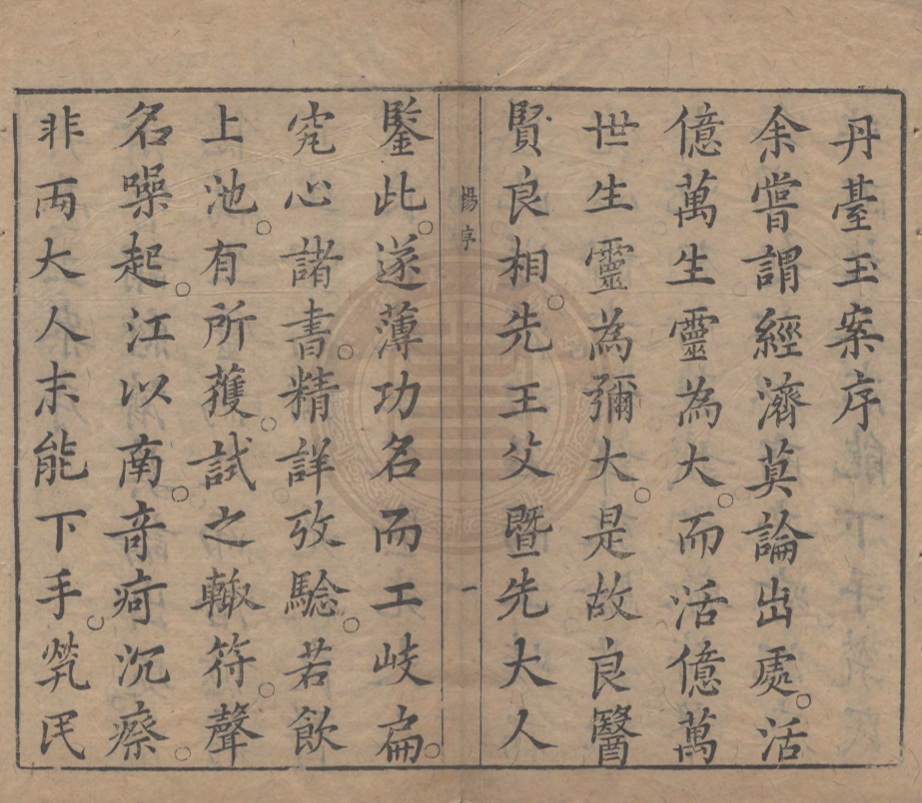 丹臺玉案序
余嘗謂經濟莫論出處。活
億萬生靈為大。而活億萬
世生靈為彌大。是故良醫
賢良相。先王父暨先大人
楊序
一
鑒此。遂薄功名而工岐扁。
究心諸書。精詳攷驗。若飲
上池。有所獲。試之輙符。聲
名噪起。江以南。奇疴沉瘵。
非两大人末能下手。煢民